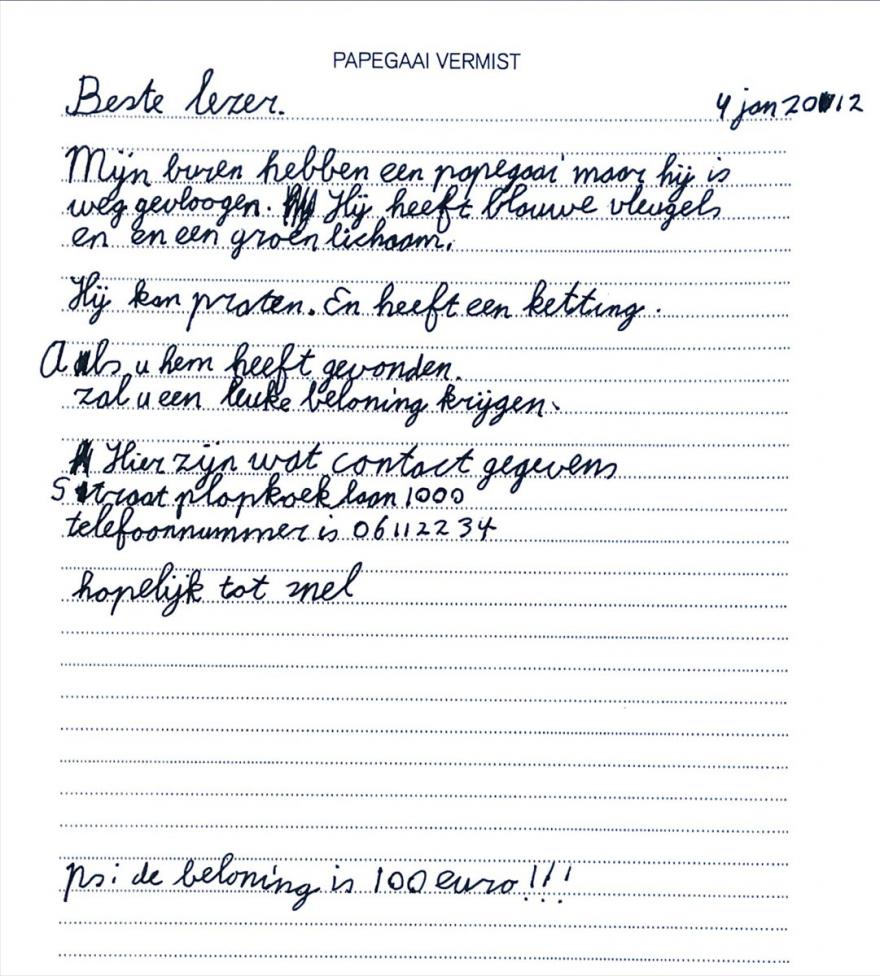 PAPEGAAI VERMIST
Beste lezer. 4 jan 2012
Mijn buren hebben een papegaai maar hij is
weg gevloogen. Hij heeft blauwe vleugels
en en een groen lichaam.
Hij kan praten. En heeft een ketting.
Aals u hem heeft gevonden.
zal u een leuke beloning krijgen.
Hier zijn wat contact gegevens
Straat plopkoek laan 1000
telefoonnummer is 06112234
hopelijk tot snel
ps: de beloning is 100 euro!!!